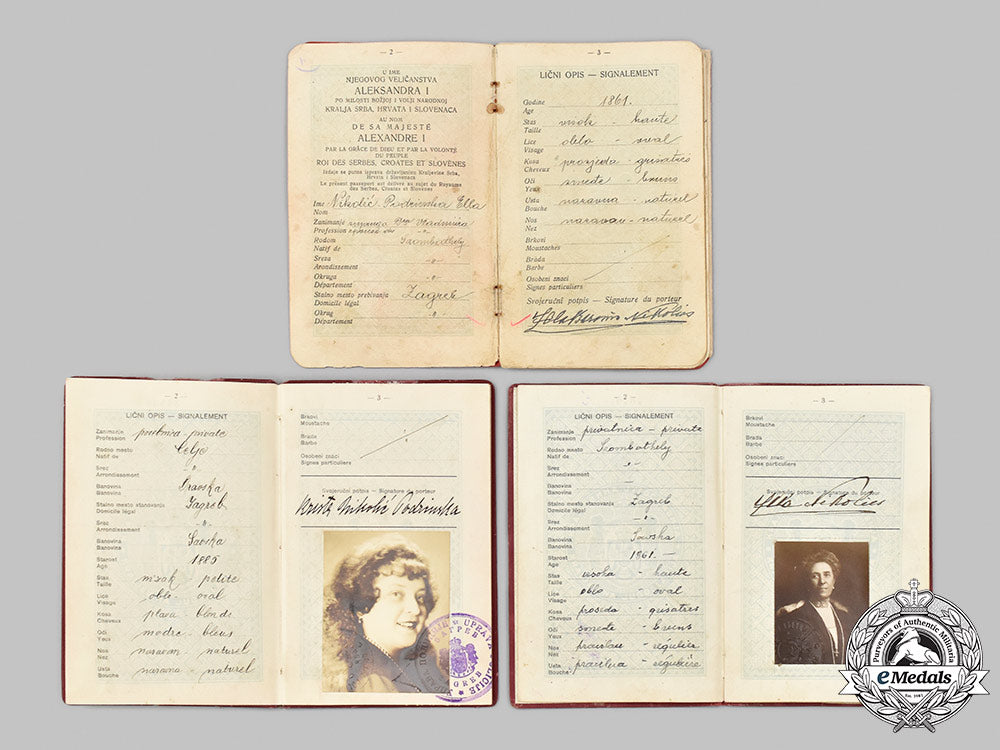 — 2 —
U IME
NJEGOVOG VELIČANSTVA
ALEKSANDRA I
PO MILOSTI BOŽJOJ I VOLJI NARODNOJ
KRALJA SRBA, HRVATA I SLOVENACA
AU NOM
DE SA MAJESTÉ
ALEXANDRE I
PAR LA GRÂCE DE DIEU ET PAR LA VOLONTÉ
DU PEUPLE
ROI DES SERBES, CROATES ET SLOVÈNES
Izdaje se putna isprava državljaninu Kraljevine Srba,
Hrvata i Slovenaca
Le présent passeport est délivré au sujet du Royaume
des Serbes, Croates et Slovènes
Ime Nikolić Podrinska Ella
Nom
Zanimanje supruga Dra Vladimira
Profession
Rodom Szombathely
Natif de
Sreza -"-
Arondissement
Okruga -"-
Département
Stalno mesto prebivanja Zagreb
Domicile légal
Okrug "
Département
— 3 —
LIČNI OPIS — SIGNALEMENT
Godine 1861.
Age
Stas visok - haute
Taille
Lice oblo - oval
Visage
Kosa prosjeda - grisatrés
Cheveux
Oči smeđe - bruns
Yeux
Usta naravna - naturel
Bouche
Nos naravan - naturel
Nez
Brkovi
Moustaches
Brada
Barbe
Osobeni znaci
Signes particuliers
Svojeručni potpis — Signature du porteur
Nikolić
— 2 —
LIČNI OPIS — SIGNALEMENT
Zanimanje privatnica - private
Profession
Rodno mesto Celje
Natif de
Srez -"-
Arrondissement
Banovina Dravska
Banovina
Stalno mesto stanovanja Zagreb
Domicile légal
Srez -"-
Arrondissement
Banovina Savska
Banovina
Starost 1885
Age
Stas nizak - petite
Taille
Lice oblo - oval
Visage
Kosa plava - blonde
Cheveux
Oči modre - bleus
Yeux
Nos naravan - naturel
Nez
Usta naravna - naturel
Bouche
— 3 —
Brkovi
Moustache
Brada
Barbe
Osobeni znaci
Signes particuliers
Svojeručni potpis — Signature du porteur
Nikolić Podrinska
УПРАВА ПОЛИЦИЈЕ
ЗАГРЕБ
ZAGREB
— 2 —
LIČNI OPIS — SIGNALEMENT
Zanimanje privatnica - private
Profession
Rodno mesto Szombathely
Natif de
Srez -"-
Arrondissement
Banovina —
Banovina
Stalno mesto stanovanja Zagreb
Domicile légal
Srez -"-
Arrondissement
Banovina Savska
Banovina
Starost 1861. —
Age
Stas visoka - haute
Taille
Lice oblo - oval
Visage
Kosa proseda - grisatres
Cheveux
Oči smeđe - bruns
Yeux
Nos pravilan - regulière
Nez
Usta pravilna - regulière
Bouche
— 3 —
Brkovi
Moustache
Brada
Barbe
Osobeni znaci
Signes particuliers
Svojeručni potpis — Signature du porteur
Ella Nikolić
Purveyors of Authentic Militaria
eMedals